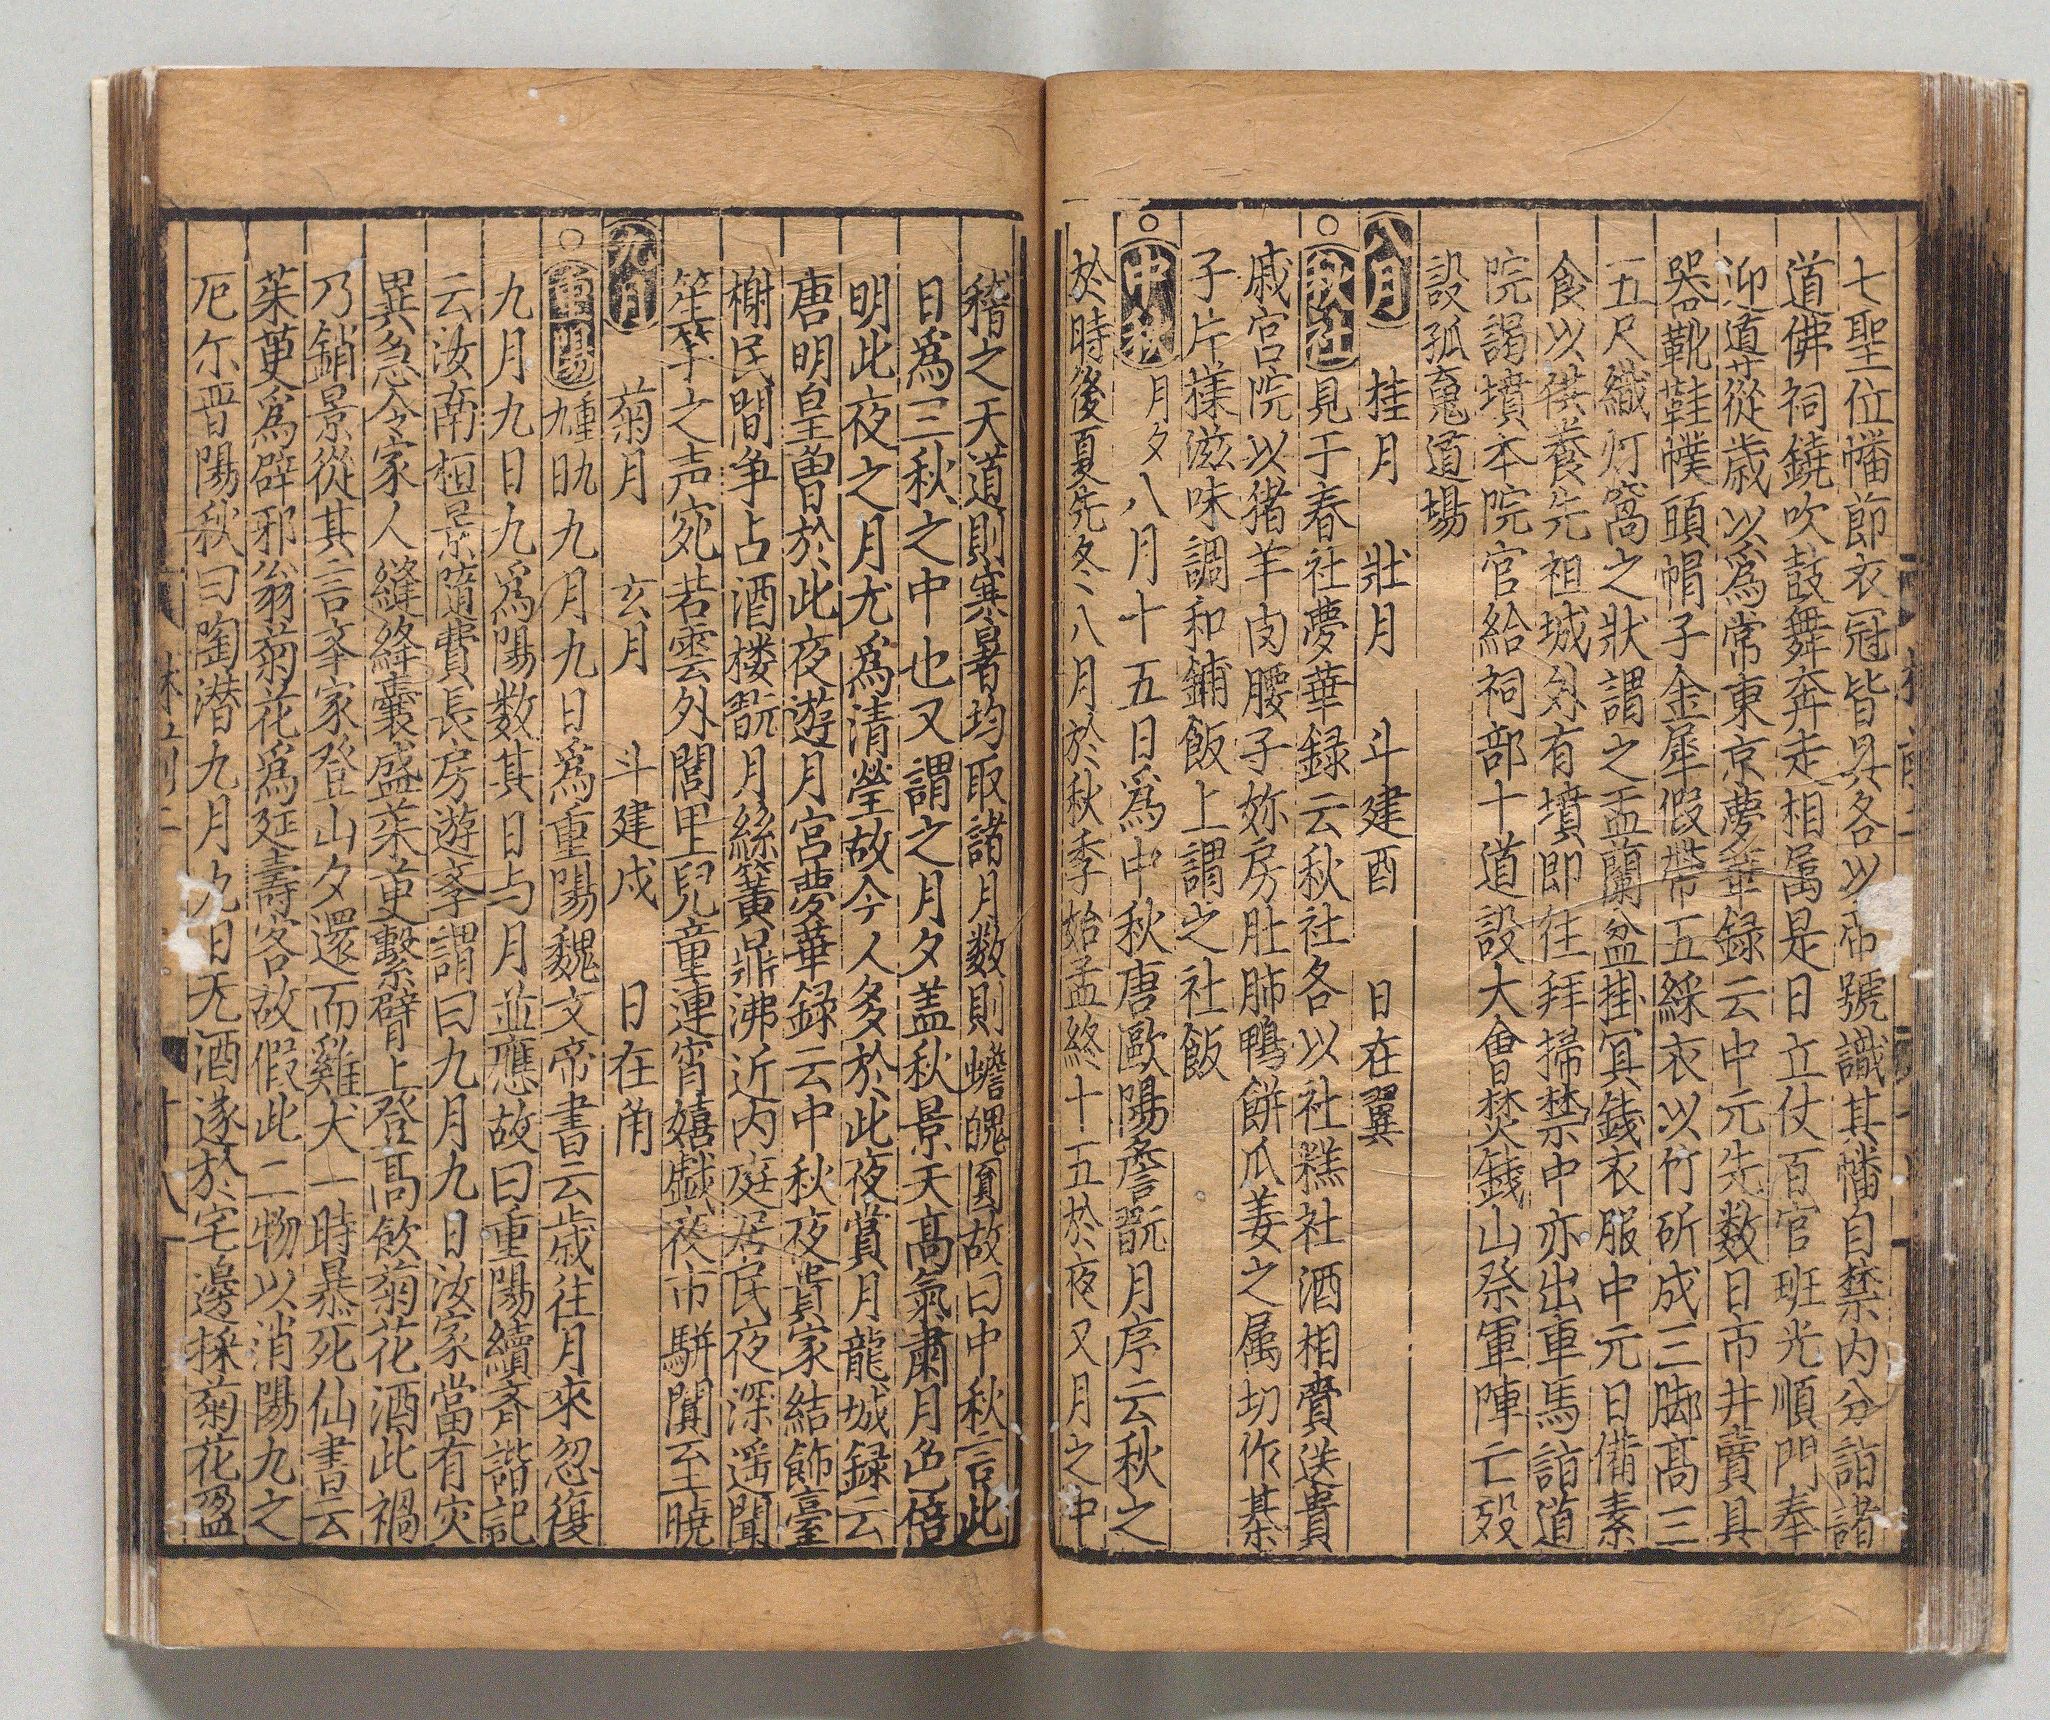 七聖位幡節衣冠皆具各以帝號識其幡自禁内分詣諸
道佛祠鐃吹鼓舞奔走相属是日立仗百官班光順門奉
迎道從歳以爲常東京夢華録云中元先数日市井賣具
器靴鞋幞頭帽子金犀假帶五綵衣以竹斫成三脚髙三
五尺織灯窩之狀謂之盂蘭盆掛冥錢衣服中元日備素
食以供養先祖城外有墳即往拜掃禁中亦出車馬詣道
院謁墳本院官給祠部十道設大會焚錢山祭軍陣亡殁
設孤䰟道場
八月 桂月 壯月 斗建酉 日在翼
○秋社 見于春社夢華録云秋社各以社糕社酒相賚送貴
戚宮院以猪羊肉腰子妳房肚肺鴨餅瓜姜之属切作棊
子片樣滋味調和鋪飯上謂之社飯
○中秋 月夕 八月十五日爲中秋唐歐陽詹翫月序云秋之
於時後夏先冬八月於秋季始孟終十五於夜又月之中
稽之天道則寒暑均取諸月数則蟾魄圓故曰中秋言此
日爲三秋之中也又謂之月夕盖秋景天髙氣肅月色倍
明此夜之月尤爲清瑩故今人多於此夜賞月龍城録云
唐明皇曽於此夜遊月宮夢華録云中秋夜貴家結飾臺
榭民間争占酒楼翫月絲簧鼎沸近内庭居民夜深遥聞
笙竽之声宛若雲外閭里兒童連宵嬉戱夜市騈闐至曉
九月 菊月 玄月 斗建戌 日在角
○重陽 九月九日爲重陽魏文帝書云歳往月來忽復
九月九日九爲陽数其日与月並應故曰重陽續斉諧記
云汝南桓景隨費長房遊學謂曰九月九日汝家當有灾
異急令家人縫絳囊盛茱萸繫臂上登髙飲菊花酒此禍
乃銷景從其言家登山夕還而雞犬一時暴死仙書云
茱萸爲辟邪翁菊花爲延壽客故假此二物以消陽九之
厄尓晋陽秋曰陶潜九月九日无酒遂於宅邊採菊花盈